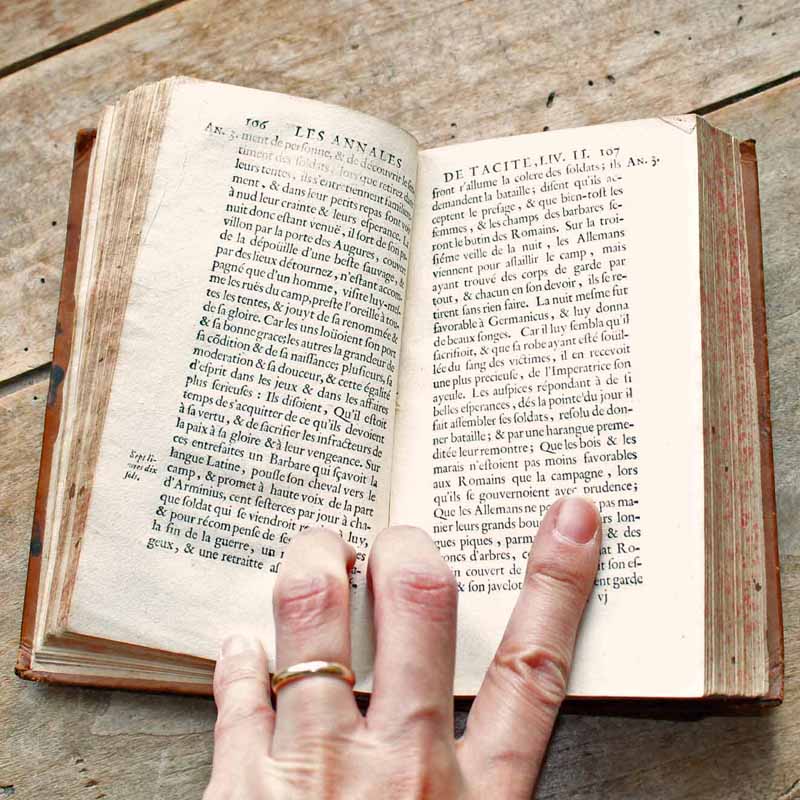 106 LES ANNALES
AN. 3. ment de personne, & de découvrir le sen
timent des soldats, lors que retirez dans
leurs tentes, ils s'entretiennent familiere
ment, & dans leur petits repas sont voir
à nud leur crainte & leurs esperance. La
nuit donc estant venuë, il sort de son pa
villon par la porte des Augures, couvert
de la dépoüille d'une beste sauvage, &
par des lieux détournez, n'estant accom-
pagné que d'un homme, visite luy-mes-
me les ruës du camp, preste l'oreille à tou-
tes les tentes, & jouyt de sa renommée &
de sa gloire. Car les uns loüoient son port
& sa bonne grace; les autres la grandeur de
sa cõdition & de sa naissance; plusieurs, sa
moderation & sa douceur, & cette égalité
d'esprit dans les jeux & dans les affaires
plus serieuses : Ils disoient, Qu'il estoit
temps de s'acquitter de ce qu'ils devoient
à sa vertu, & de sacrifier les infracteurs de
la paix à sa gloire & à leur vengeance. Sur
ces entrefaites un Barbare qui sçavoit la
langue Latine, pousse son cheval vers le
Sept li-
vres dix
sols.
camp, & promet à haute voix de la part
d'Arminius, cent sesterces par jour à cha-
que soldat qui se viendroit rendre à luy,
& pour récompense de ses
la fin de la guerre, un
geux, & une retraitte
DE TACITE, LIV. II. 107
AN. 3.
front r'allume la colere des soldats; ils
demandent la bataille; disent qu'ils ac-
ceptent le presage, & que bien-tost les
femmes, & les champs des barbares se-
ront le butin des Romains. Sur la troi-
siéme veille de la nuit, les Allemans
viennent pour assaillir le camp, mais
ayant trouvé des corps de garde par
tout, & chacun en son devoir, ils se re-
tirent sans rien faire. La nuit mesme fut
favorable à Germanicus, & luy donna
de beaux songes. Car il luy sembla qu'il
sacrifioit, & que sa robe ayant esté soüil-
lée du sang des victimes, il en recevoit
une plus precieuse, de l'Imperatrice son
ayeule. Les auspices répondant à de si
belles esperances, dés la pointe du jour il
fait assembler ses soldats, resolu de don-
ner bataille; & par une harangue preme-
ditée leur remontre; Que les bois & les
marais n'estoient pas moins favorables
aux Romains que la campagne, lors
qu'ils se gouvernoient avec prudence;
Que les Allemans ne pas ma-
nier leurs grands lon-
gues piques, & des
troncs d'arbres, Ro-
couvert de son es-
& son javelot garde
vj